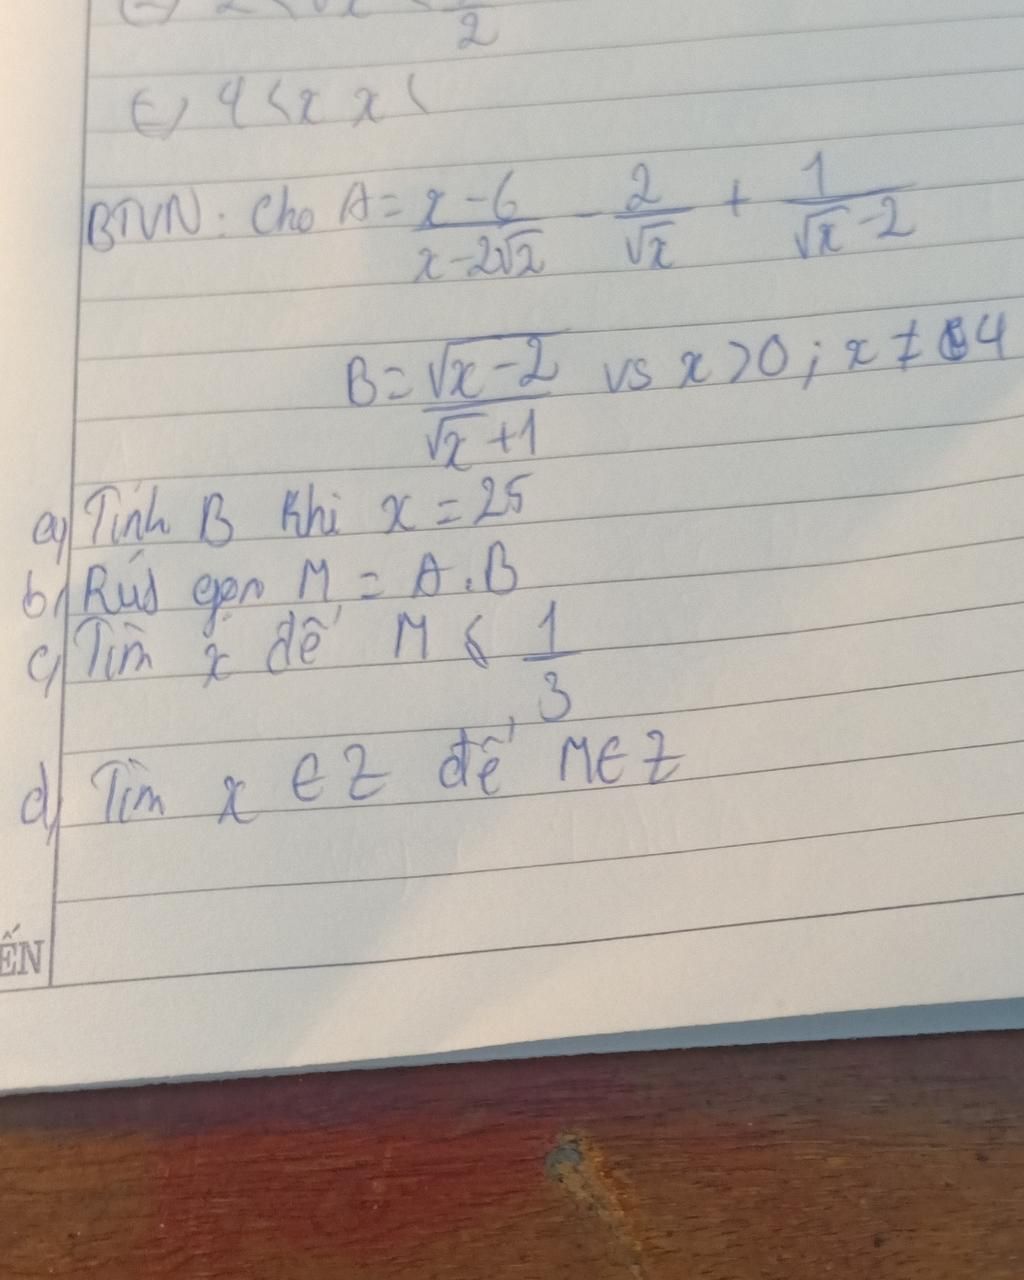 2
E) 4 < x x <
BTVN: Cho A = x-6 / x-2√x - 2 / √x + 1 / √x-2
B = √x-2 / √x+1 vs x > 0 ; x ≠ 4
a) Tính B khi x = 25
b) Rút gọn M = A.B
c) Tìm x để M ≤ 1/3
d) Tìm x ∈ Z để M ∈ Z
ẾN